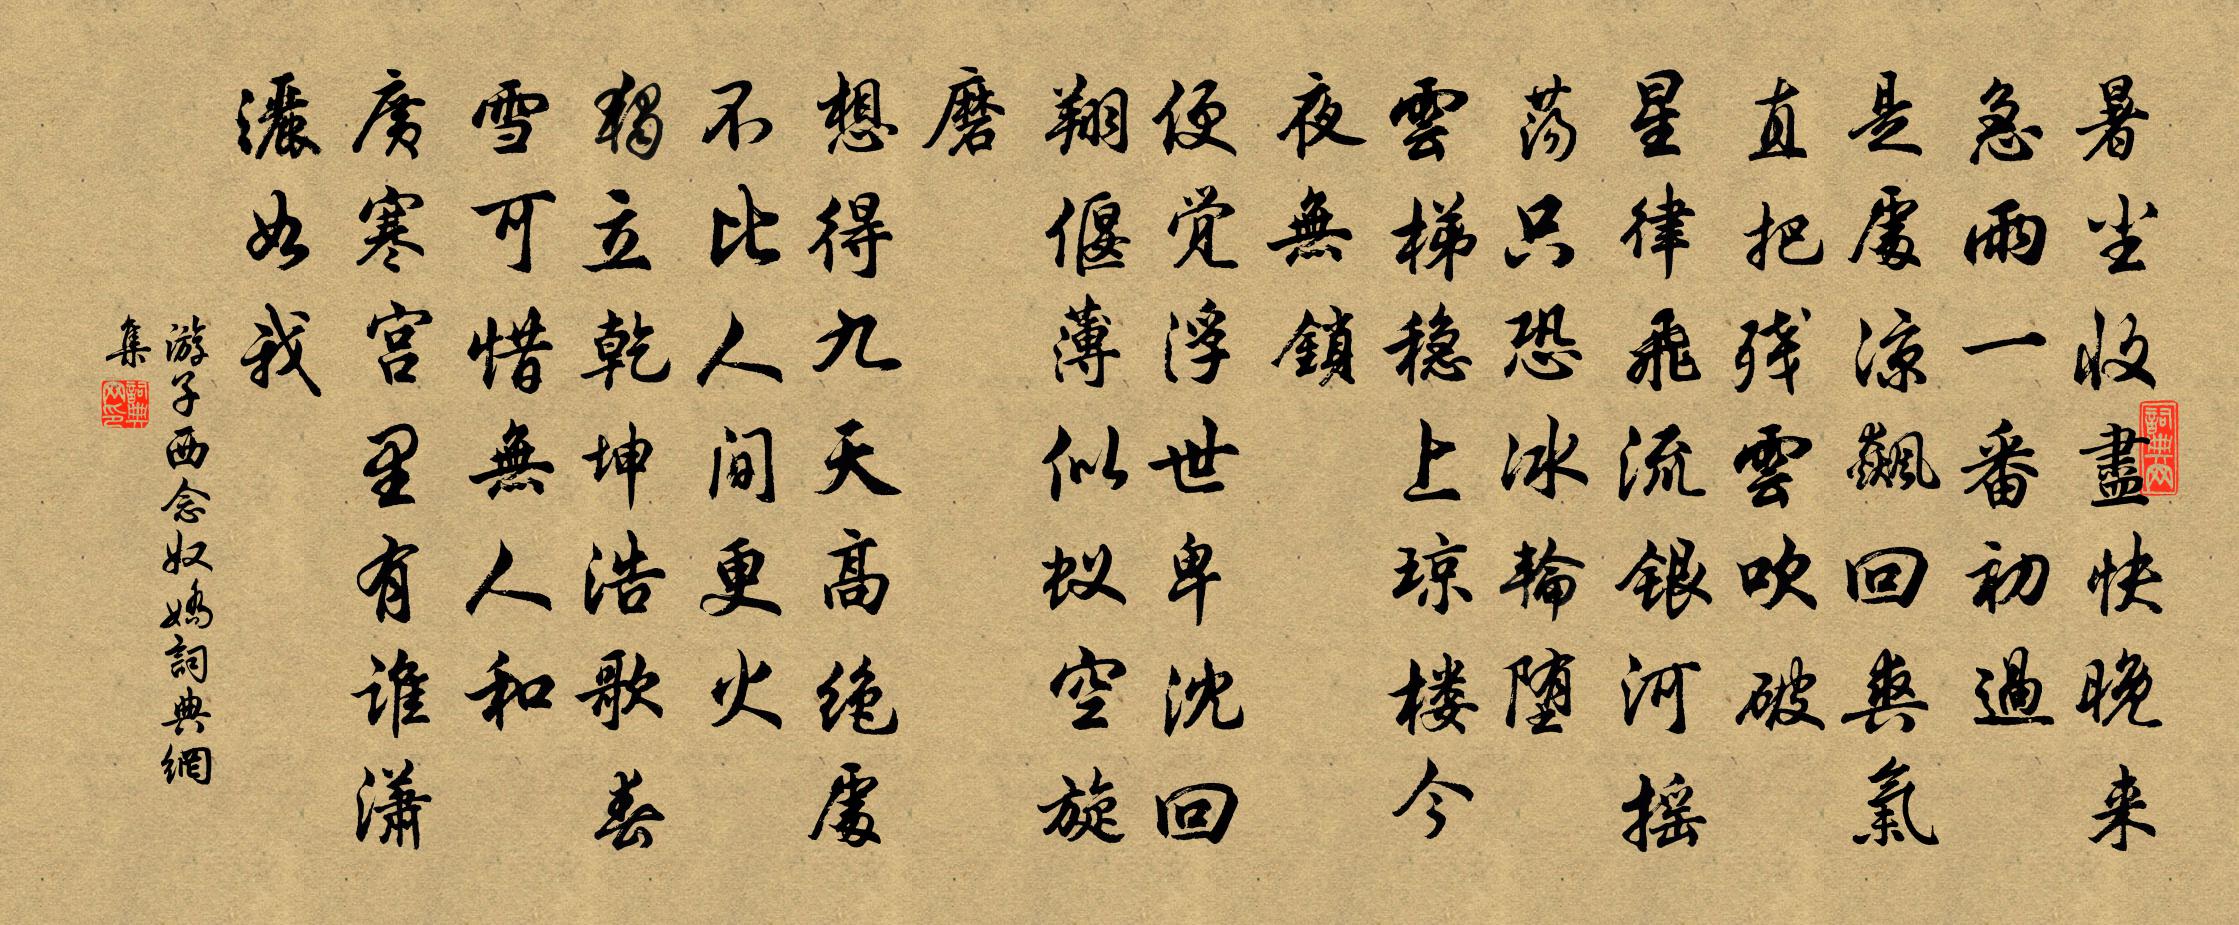 暑尘收盡快晚来
急雨一番初過
是處凉飆回爽氣
直把残雲吹破
星律飛流銀河摇
荡只恐冰輪堕
雲梯稳上琼楼今
夜無鎖
便觉浮世卑沈回
翔偃薄似蚁空旋
磨
想得九天高绝處
不比人间更火
獨立乾坤浩歌春
雪可惜無人和
廣寒宫里有谁瀟
灑如我
游子西念奴嬌詞典網
集
詞典网
詞典网印